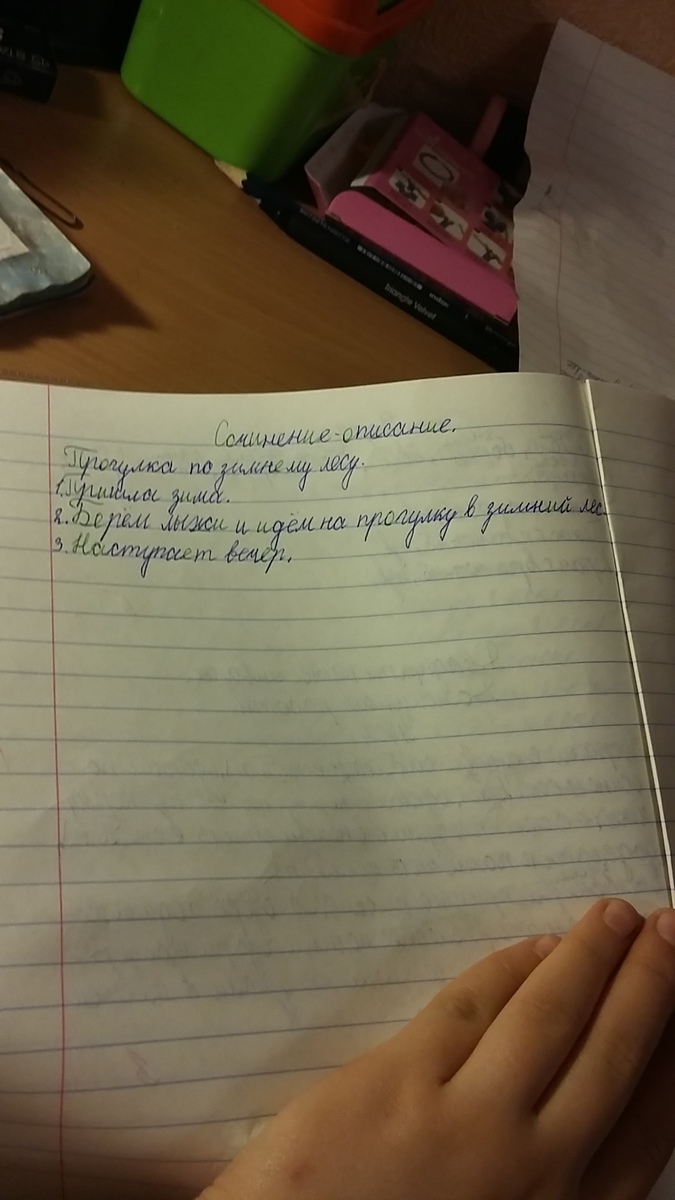 Сочинение-описание.
Прогулка по зимнему лесу.
1. Пришла зима.
2. Берём лыжи и идём на прогулку в зимний лес.
3. Наступает вечер.
Triangle Velvet